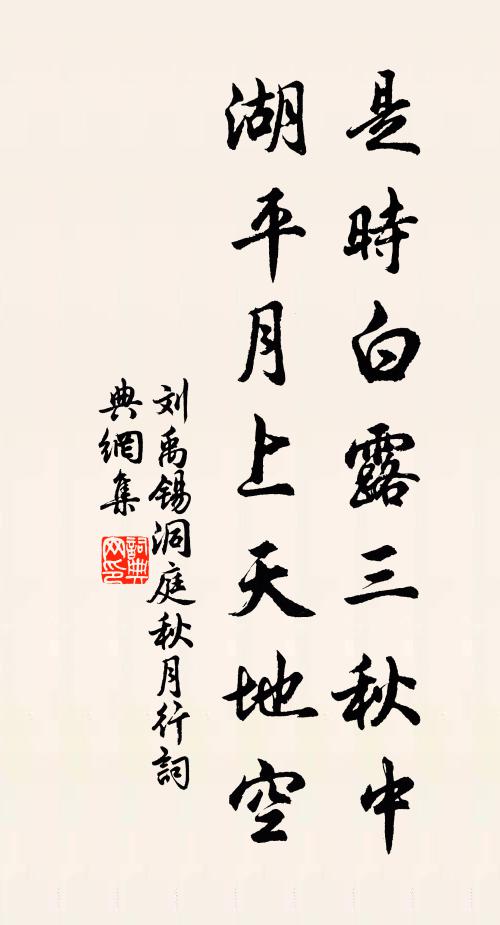 是時白露三秋中
湖平月上天地空
刘禹锡洞庭秋月行詞
典網集
詞典
网印